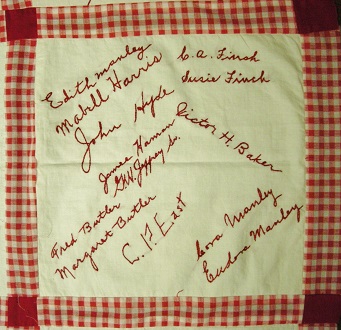 Edith Manley
Mabell Harris
John Hyde
C. A. Finch
Susie Finch
James Haman
G.W. Jeffrey Sr.
Victor H. Baker
Fred Butler
Margaret Butler
C. P. East
Cora Manley
Eudora Manley